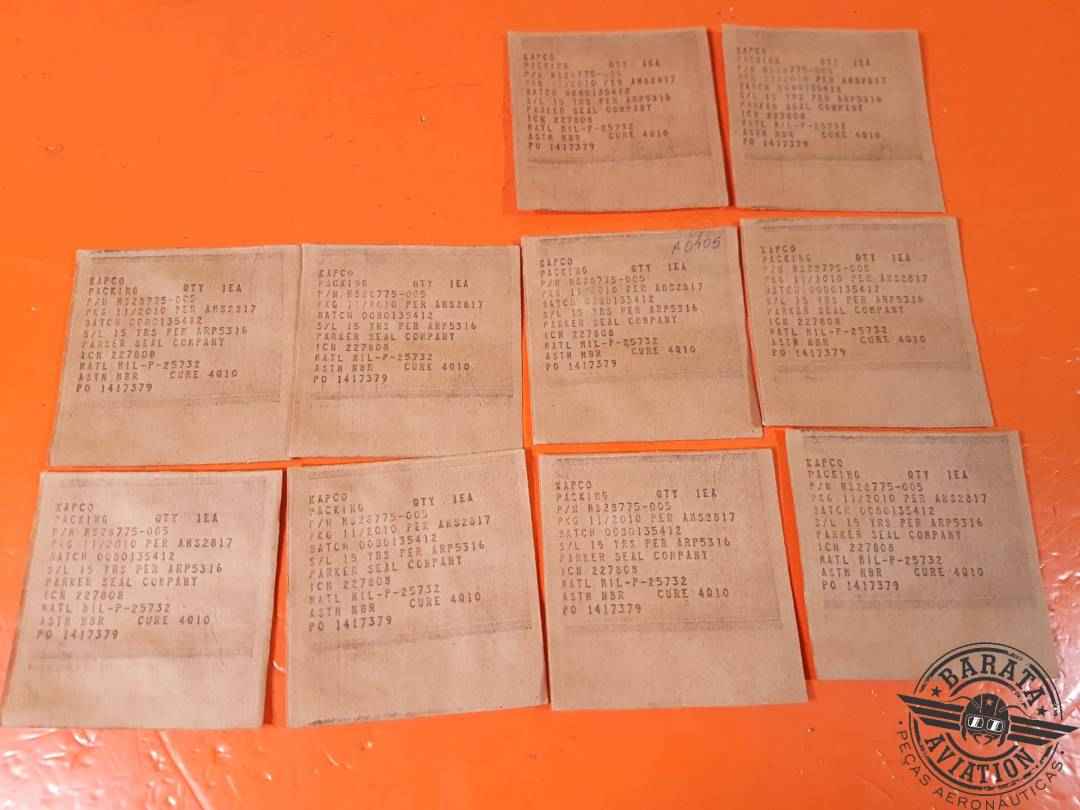 KAPCO
PACKING QTY 1EA
P/N MS28775-005
PKG 11/2010 PER AMS2817
BATCH 0080135412
S/L 15 YRS PER ARP5316
PARKER SEAL COMPANY
ICN 227808
MATL MIL-P-25732
ASTM NBR CURE 4Q10
PO 1417379
KAPCO
PACKING QTY 1EA
P/N MS28775-005
PKG 11/2010 PER AMS2817
BATCH 0080135412
S/L 15 YRS PER ARP5316
PARKER SEAL COMPANY
ICN 227808
MATL MIL-P-25732
ASTM NBR CURE 4Q10
PO 1417379
KAPCO
PACKING QTY 1EA
P/N MS28775-005
PKG 11/2010 PER AMS2817
BATCH 0080135412
S/L 15 YRS PER ARP5316
PARKER SEAL COMPANY
ICN 227808
MATL MIL-P-25732
ASTM NBR CURE 4Q10
PO 1417379
KAPCO
PACKING QTY 1EA
P/N MS28775-005
PKG 11/2010 PER AMS2817
BATCH 0080135412
S/L 15 YRS PER ARP5316
PARKER SEAL COMPANY
ICN 227808
MATL MIL-P-25732
ASTM NBR CURE 4Q10
PO 1417379
KAPCO
PACKING QTY 1EA
P/N MS28775-005
PKG 11/2010 PER AMS2817
BATCH 0080135412
S/L 15 YRS PER ARP5316
PARKER SEAL COMPANY
ICN 227808
MATL MIL-P-25732
ASTM NBR CURE 4Q10
PO 1417379
KAPCO
PACKING QTY 1EA
P/N MS28775-005
PKG 11/2010 PER AMS2817
BATCH 0080135412
S/L 15 YRS PER ARP5316
PARKER SEAL COMPANY
ICN 227808
MATL MIL-P-25732
ASTM NBR CURE 4Q10
PO 1417379
KAPCO
PACKING QTY 1EA
P/N MS28775-005
PKG 11/2010 PER AMS2817
BATCH 0080135412
S/L 15 YRS PER ARP5316
PARKER SEAL COMPANY
ICN 227808
MATL MIL-P-25732
ASTM NBR CURE 4Q10
PO 1417379
KAPCO
PACKING QTY 1EA
P/N MS28775-005
PKG 11/2010 PER AMS2817
BATCH 0080135412
S/L 15 YRS PER ARP5316
PARKER SEAL COMPANY
ICN 227808
MATL MIL-P-25732
ASTM NBR CURE 4Q10
PO 1417379
KAPCO
PACKING QTY 1EA
P/N MS28775-005
PKG 11/2010 PER AMS2817
BATCH 0080135412
S/L 15 YRS PER ARP5316
PARKER SEAL COMPANY
ICN 227808
MATL MIL-P-25732
ASTM NBR CURE 4Q10
PO 1417379
KAPCO
PACKING QTY 1EA
P/N MS28775-005
PKG 11/2010 PER AMS2817
BATCH 0080135412
S/L 15 YRS PER ARP5316
PARKER SEAL COMPANY
ICN 227808
MATL MIL-P-25732
ASTM NBR CURE 4Q10
PO 1417379
BARATA
AVIATION
PEÇAS AERONÁUTICAS